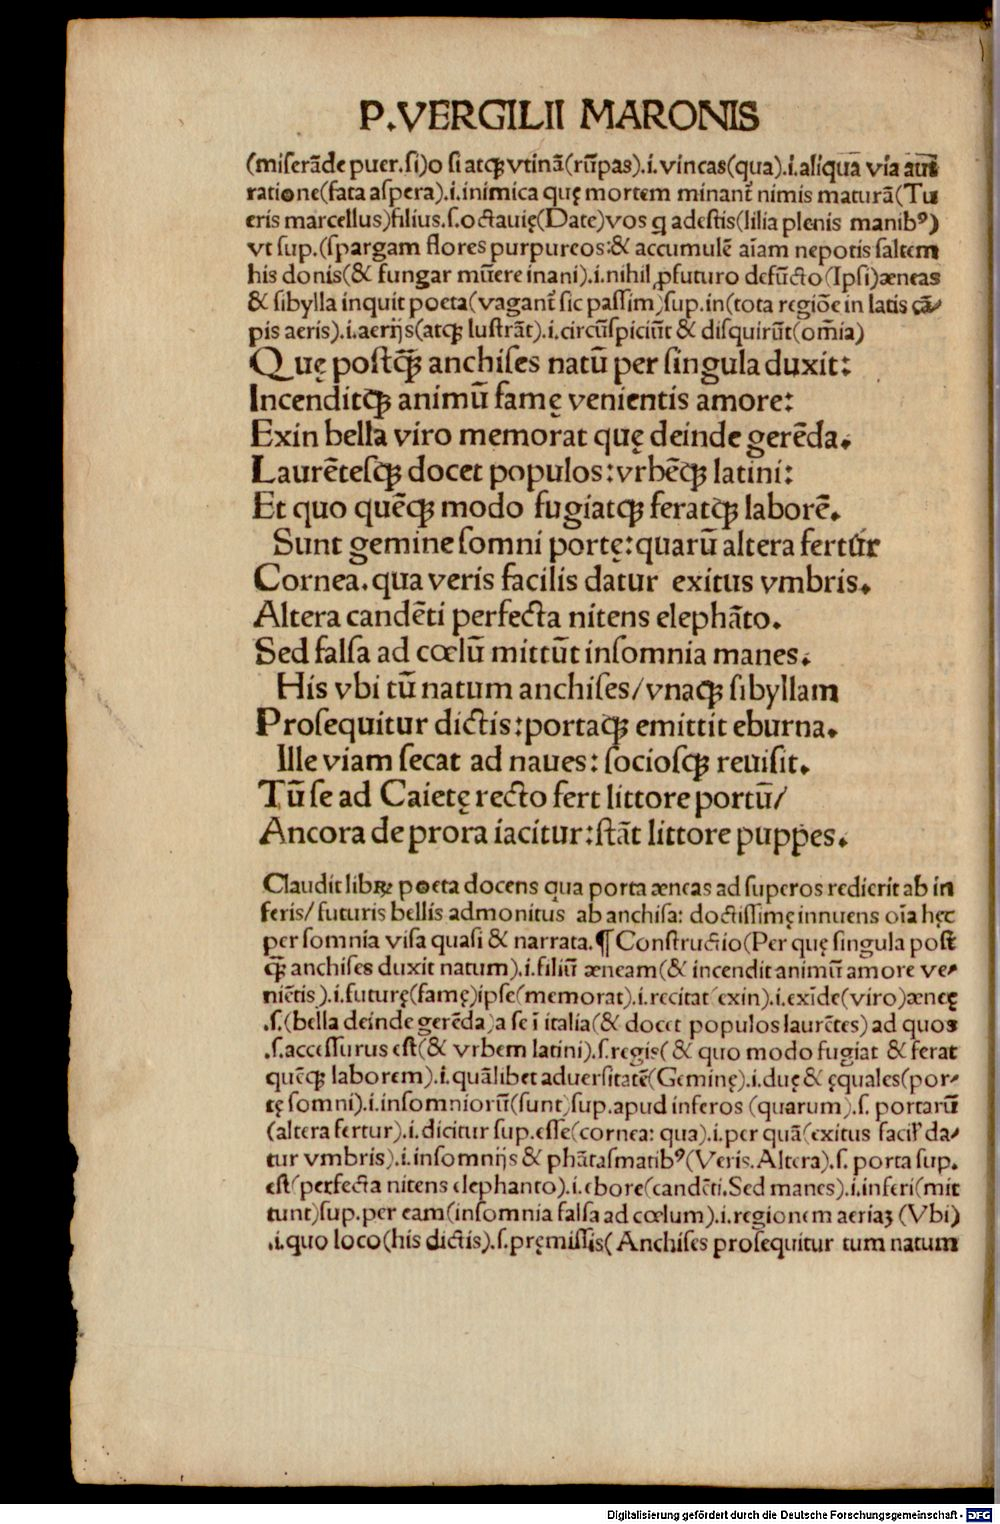 P.VERGILII MARONIS
(miserāde puer.si)o si atqꝫ vtinā(rūpas).i.vincas(qua).i.aliquā via aūt
ratione(fata aspera).i.inimica quę mortem minant̄ nimis maturā(Tu
eris marcellus)filius.s.octauię(Date)vos q adestis(lilia plenis manibꝰ)
vt sup.(spargam flores purpureos:& accumulē aīam nepotis saltem
his donis(& fungar mūere inani).i.nihil ꝓfuturo defūcto(Ipsi)æneas
& sibylla inquit poeta(vagant̄ sic passim)sup.in(tota regiōe in latis cā⸗
pis aeris).i.aerijs(atqꝫ lustrāt).i.circūspiciūt & disquirūt(om̄ia)
Quę postqꝫ̄ anchises natū per singula duxit:
Incenditqꝫ animū famę venientis amore:
Exin bella viro memorat quę deinde gerēda.
Laurētesqꝫ docet populos:vrbēqꝫ latini:
Et quo quēqꝫ modo fugiatqꝫ feratqꝫ laborē.
Sunt gemine somni portę:quarū altera fertur
Cornea.qua veris facilis datur exitus vmbris.
Altera candēti perfecta nitens elephāto.
Sed falsa ad cœlū mittūt insomnia manes.
His vbi tū natum anchises/vnaqꝫ sibyllam
Prosequitur dictis:portaqꝫ emittit eburna.
Ille viam secat ad naues: sociosqꝫ reuisit.
Tū se ad Caietę recto fert littore portū/
Ancora de prora iacitur:stāt littore puppes.
Claudit libꝝ poeta docens qua porta æneas ad superos redierit ab in
feris/futuris bellis admonitus ab anchisa: doctissimę innuens oīa hęc
per somnia visa quasi & narrata.¶ Constructio(Per quę singula post
qꝫ̄ anchises duxit natum).i.filiū æneam(& incendit animū amore ve⸗
niētis).i.futurę(famę)ipse(memorat).i.recitat(exin).i.exīde(viro)æneę
.s.(bella deinde gerēda)a se ī italia(& docet populos laurētes)ad quos
.s.accessurus est(& vrbem latini).s.regis(& quo modo fugiat & ferat
quēqꝫ laborem).i.quālibet aduersitatē(Geminę).i.duę & ęquales(por⸗
tę somni).i.insomniorū(sunt)sup.apud inferos (quarum).s. portarū
(altera fertur).i.dicitur sup.esse(cornea: qua).i.per quā(exitus facil' da⸗
tur vmbris).i.insomnijs & phātasmatibꝰ(Veris.Altera).s. porta sup.
est(perfecta nitens elephanto).i.ebore(candēti.Sed manes).i.inferi(mit
tunt)sup.per eam(insomnia falsa ad cœlum).i.regionem aeriaꝫ (Vbi)
.i.quo loco(his dictis).s.pręmissis( Anchises prosequitur tum natum
Digitalisierung gefördert durch die Deutsche Forschungsgemeinschaft - DFG